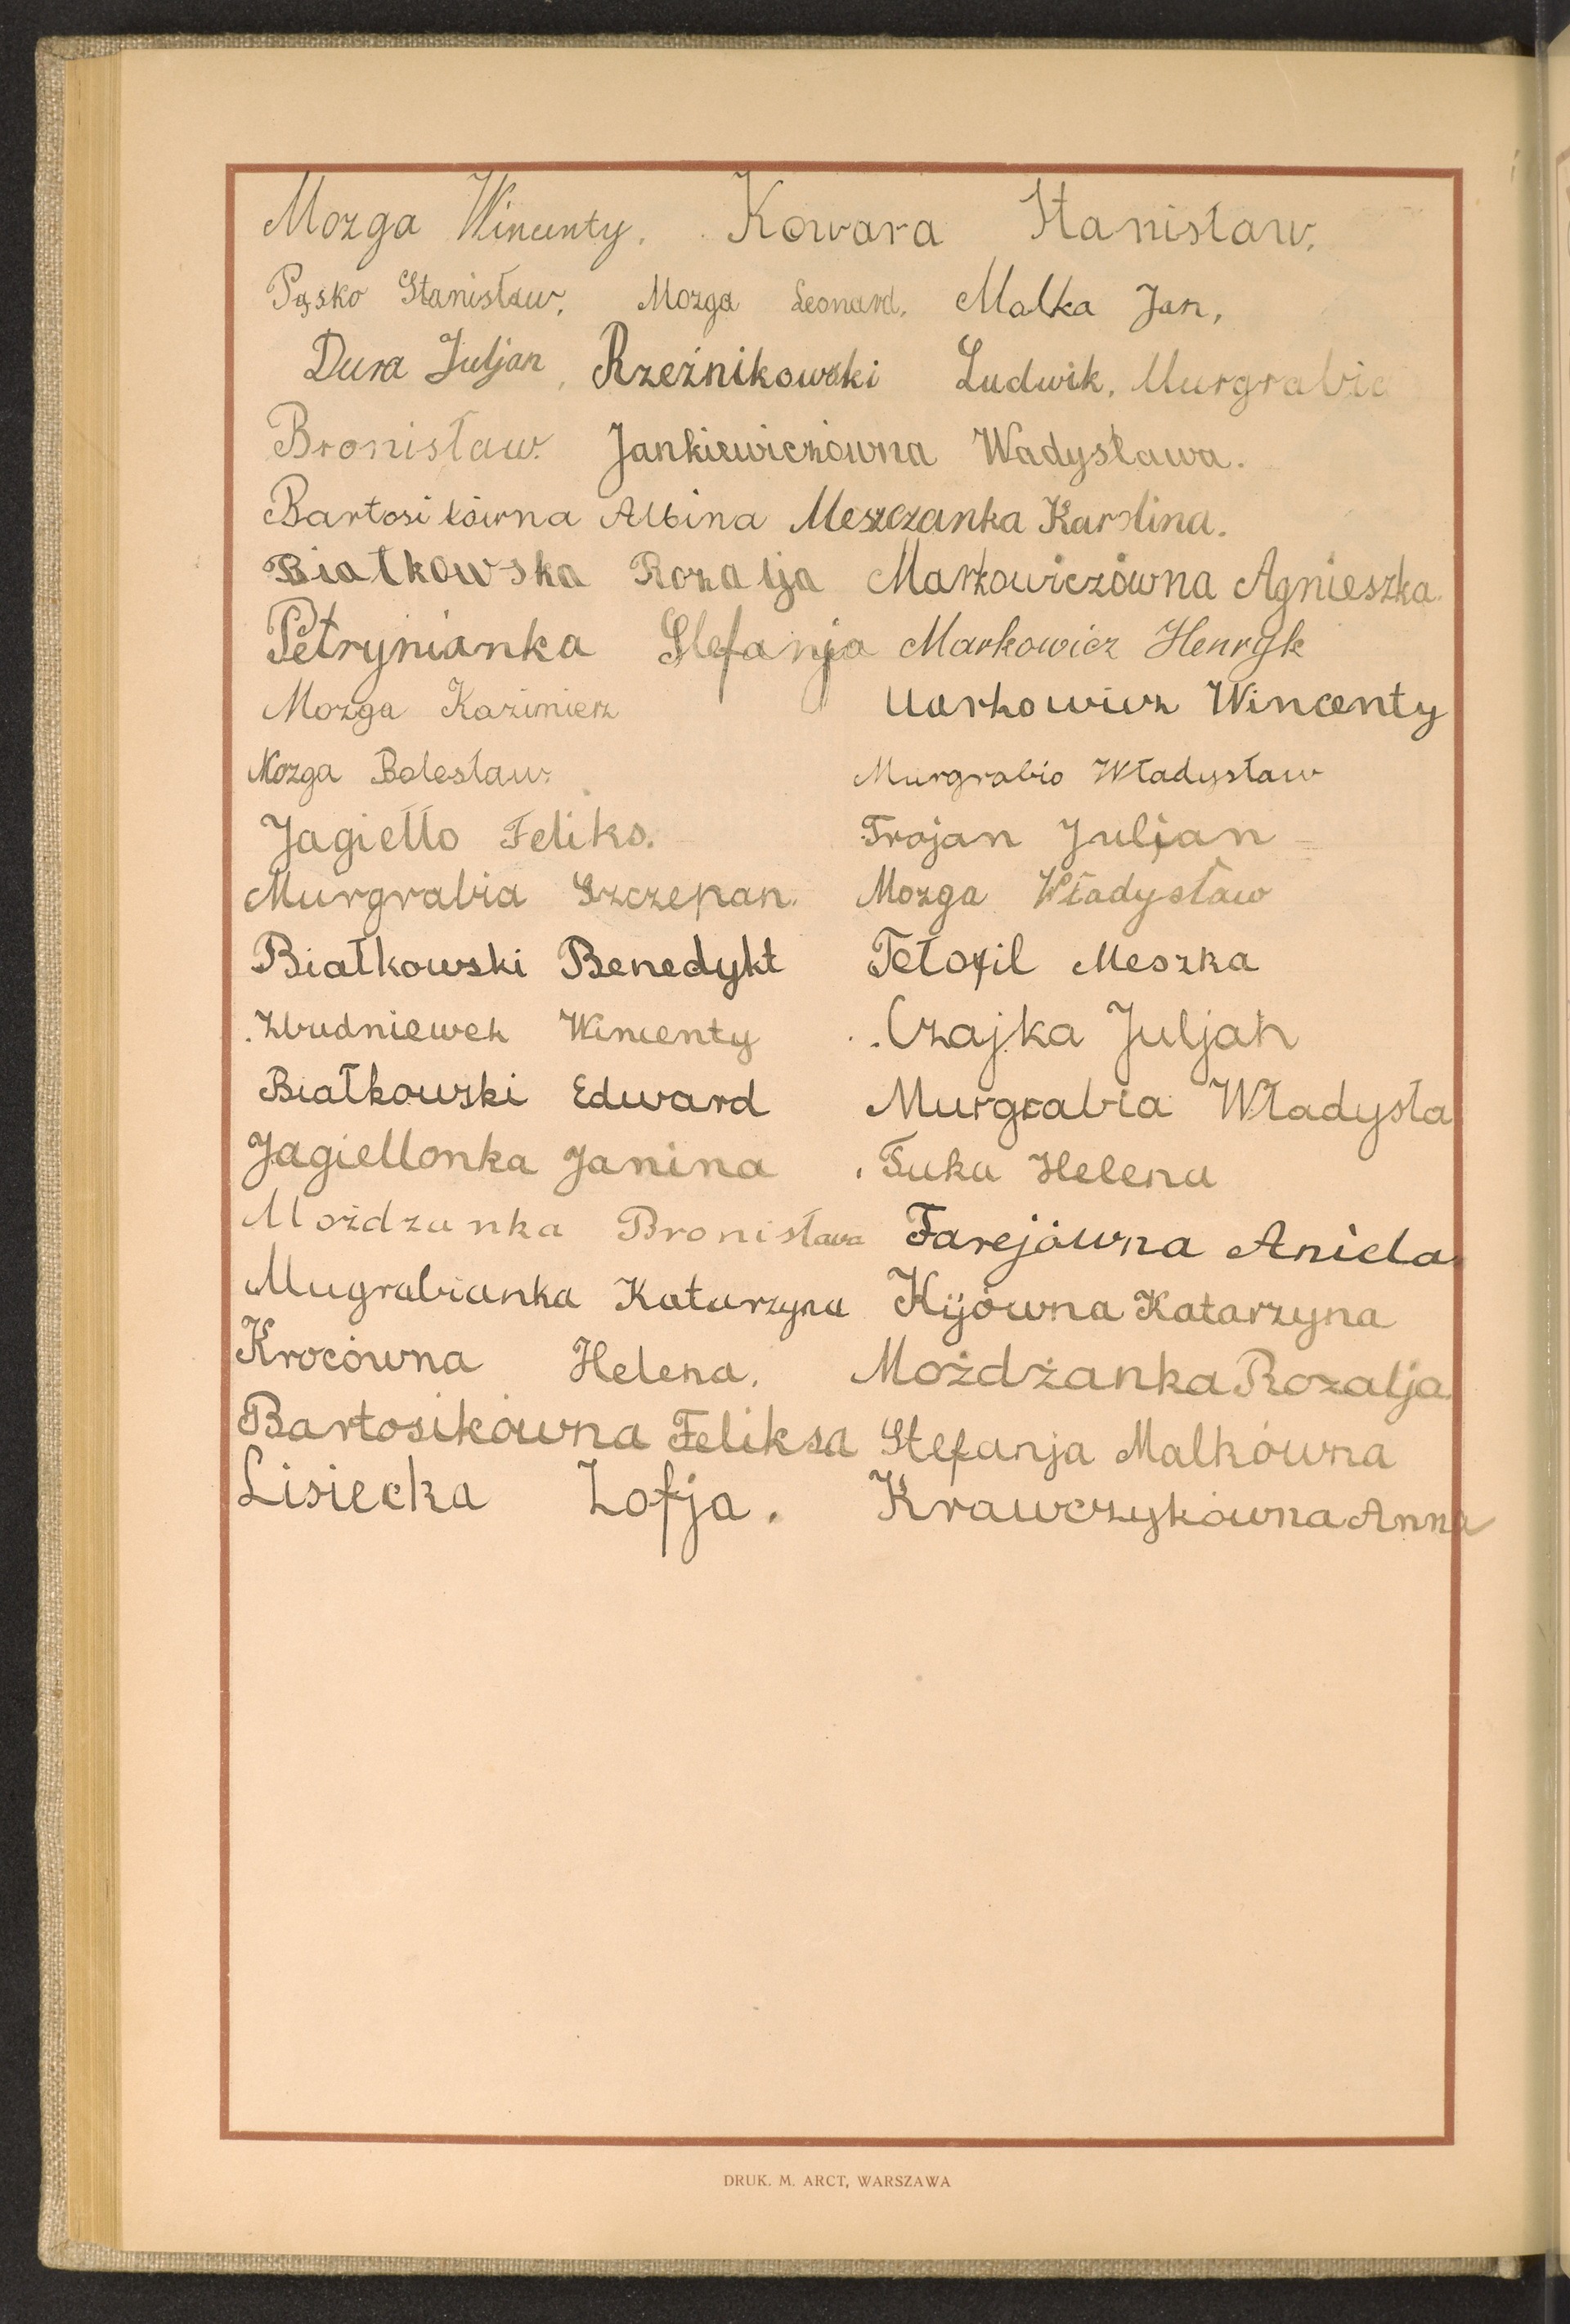 Mozga Wincenty. Kowara Stanisław.
Pąsko Stanisław, Mozga Leonard, Malka Jan,
Dura Juljan, Rzeźnikowski Ludwik, Murgrabia
Bronisław. Jankiewiczówna Wadysława.
Bartosikówna Albina Meszczanka Karolina.
Białkowska Rozalja Markowiczówna Agnieszka.
Petrynianka Stefanja Markowicz Henryk
Mozga Kazimierz Markowicz Wincenty
Mozga Bolesław. Murgrabio Władysław
Jagiełło Feliks. Trojan Juljan
Murgrabia Szczepan. Mozga Władysław
Białkowski Benedykt Tetofil Meszka
Zbudniewek Wincenty Czajka Juljan
Białkowski Edward Murgrabia Władysła
Jagiellonka Janina Fuka Helena
Możdzanka Bronisława Farejówna Aniela.
Mugrabianka Katarzyna Kijówna Katarzyna
Krocówna Helena, Możdżanka Rozalja.
Bartosikówna Feliksa Stefanja Malkówna
Lisiecka Zofja. Krawczykówna Anna
DRUK. M. ARCT, WARSZAWA